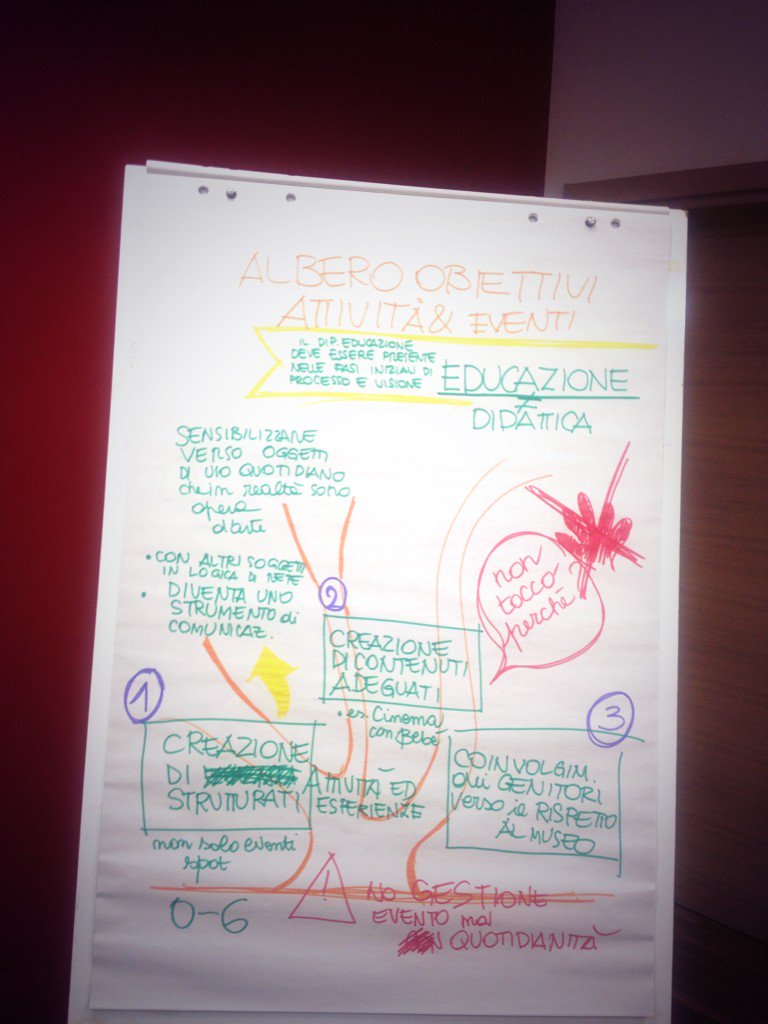 ALBERO OBIETTIVI
ATTIVITÀ & EVENTI
IL DIP. EDUCAZIONE
DEVE ESSERE PRESENTE
NELLE FASI INIZIALI DI
PROCESSO E VISIONE
EDUCAZIONE
≠
DIDATTICA
SENSIBILIZZARE
VERSO OGGETTI
DI USO QUOTIDIANO
che in realtà sono
opera
d'arte
• CON ALTRI SOGGETTI
IN LOGICA DI RETE
• DIVENTA UNO
STRUMENTO di
COMUNICAZ.
non
tocco
perché?
2
CREAZIONE
DI CONTENUTI
ADEGUATI
• es. Cinema
con Bebè
1
CREAZIONE
DI ATTIVITÀ ED
STRUTTURATI ESPERIENZE
non solo eventi
spot
3
COINVOLGIM.
dei GENITORI
verso il RISPETTO
AL MUSEO
0-6
!
NO GESTIONE
EVENTO ma
QUOTIDIANITÀ